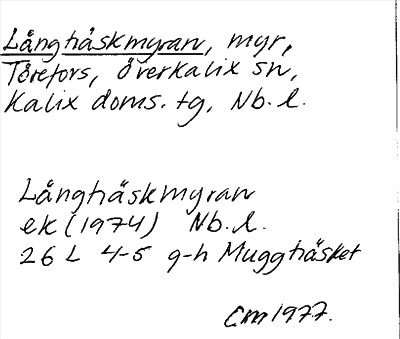 Långhåskmyran, myr,
Törefors, Överkalix sn,
Kalix doms. tg, Nb. l.
Långhäskmyran
ek (1974) Nb. l.
26 L 4-5 g-h Mugghäsket
CM 1977.